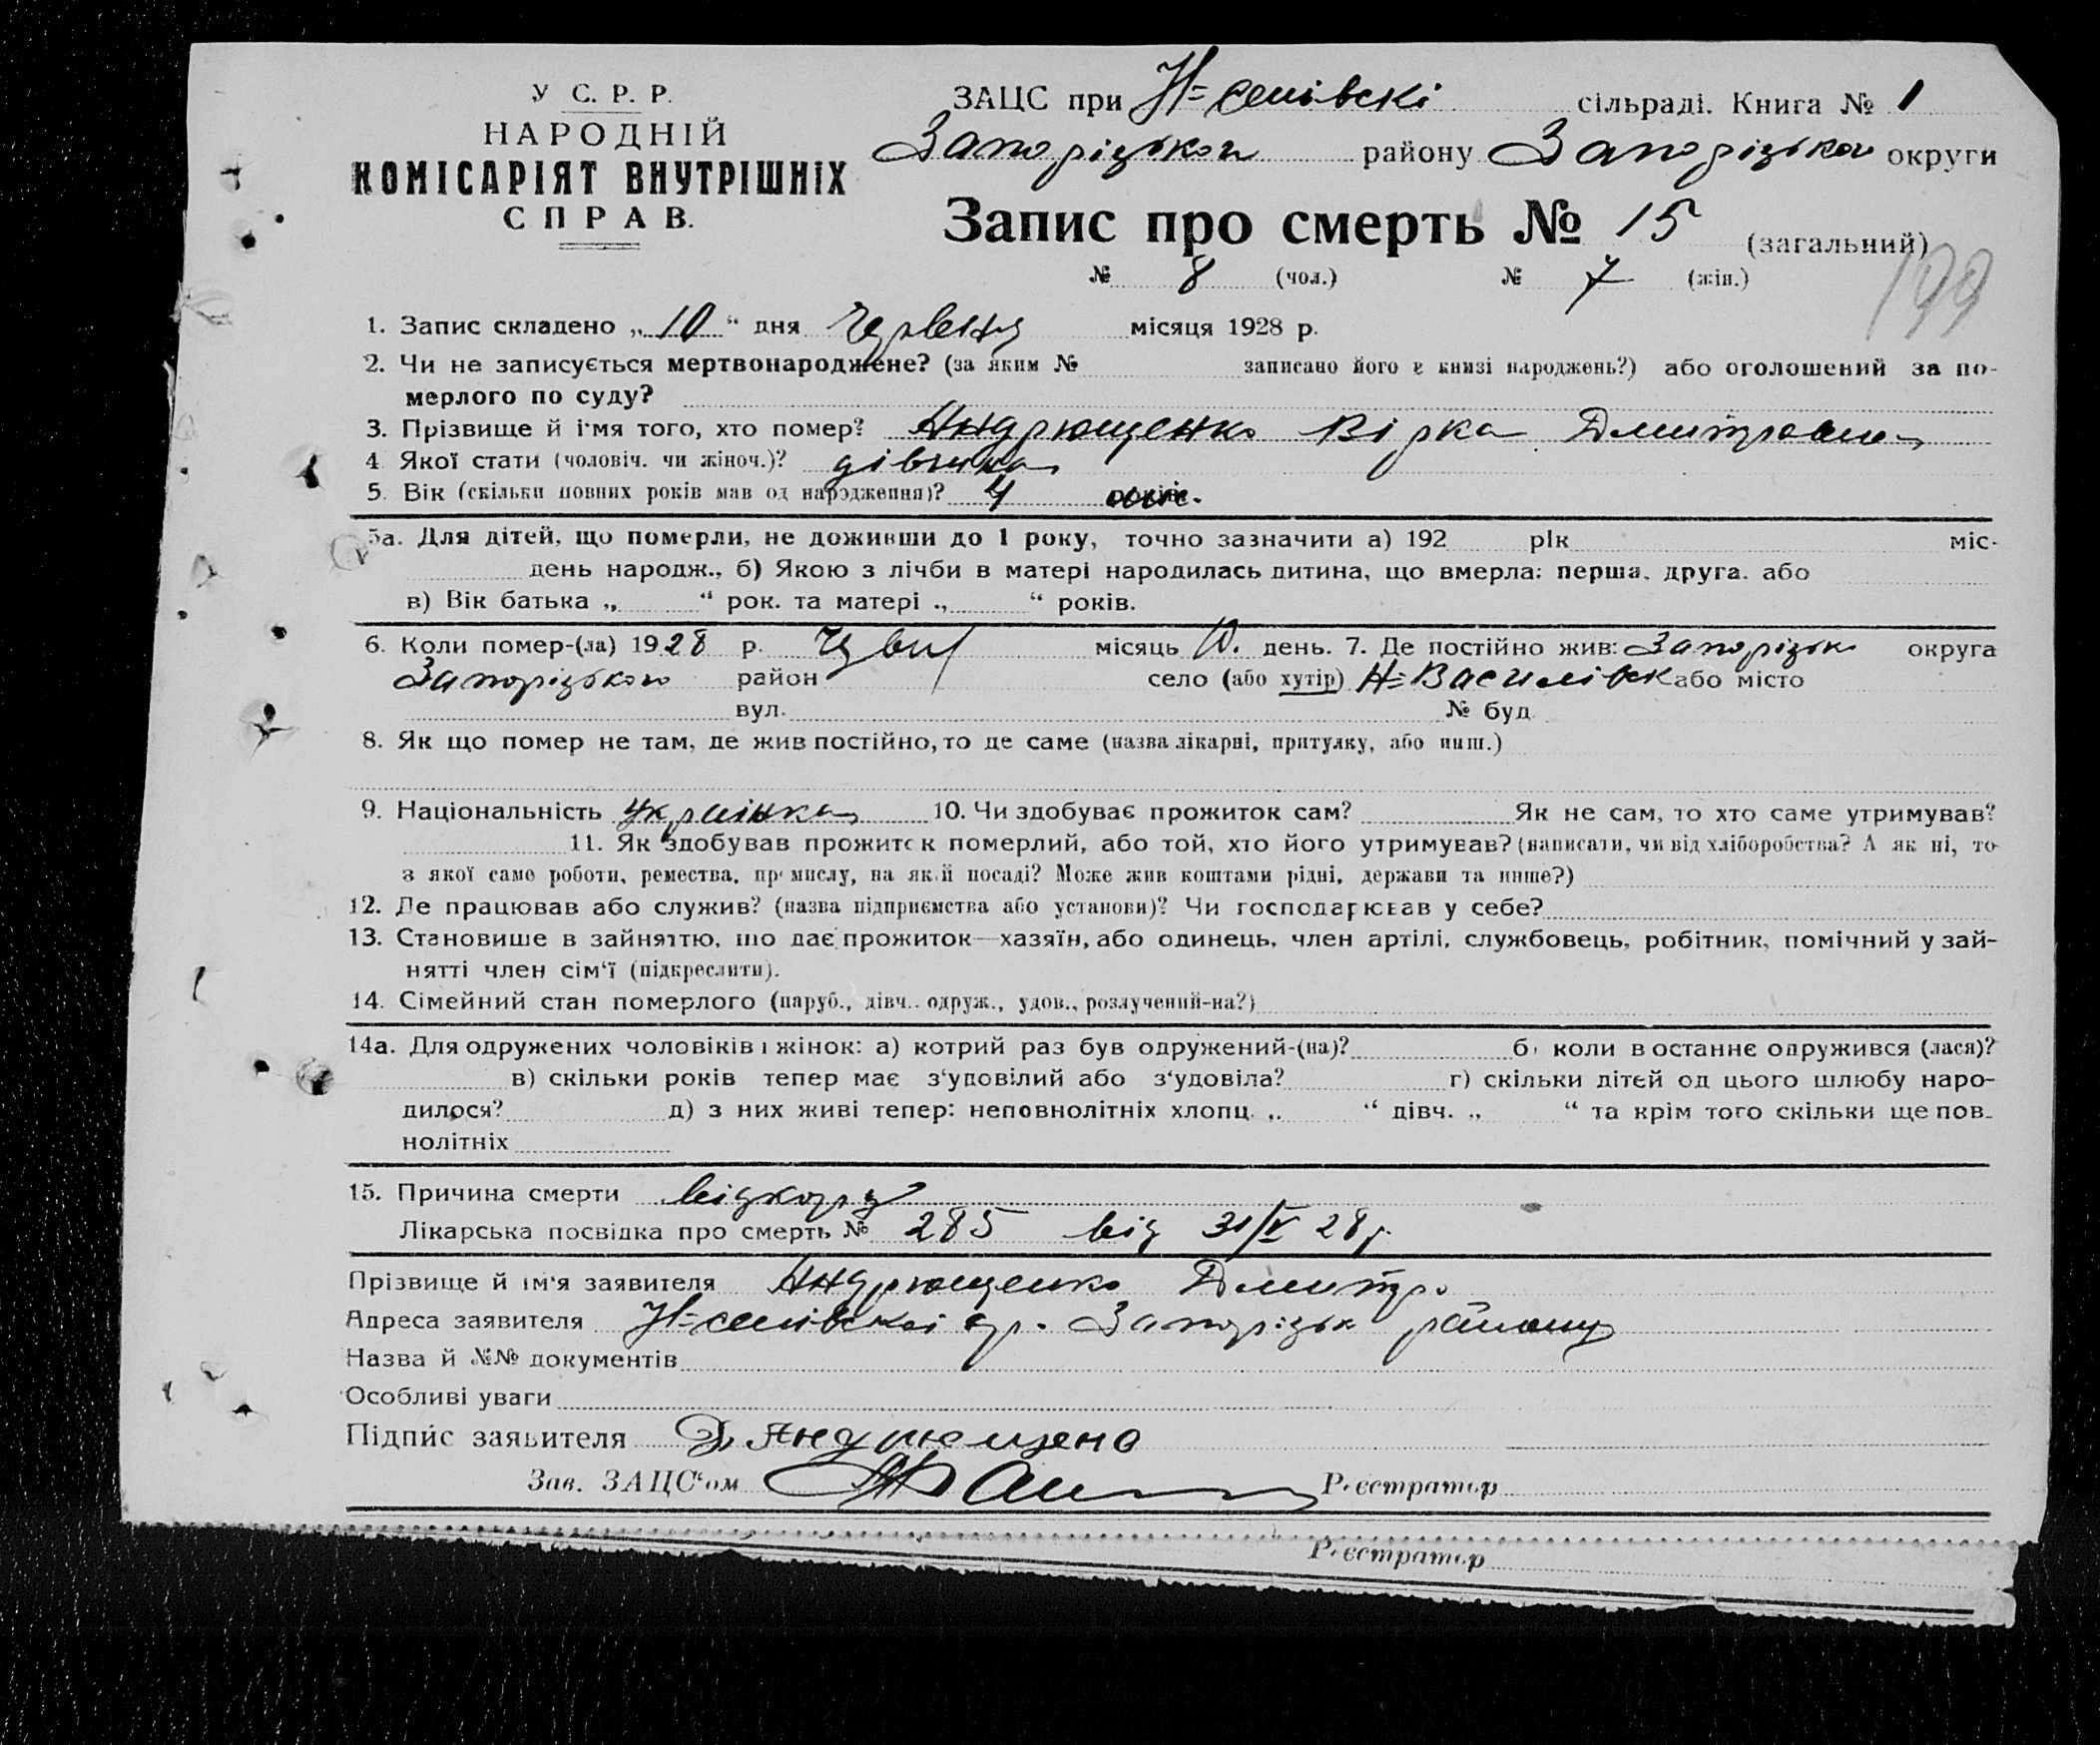 У С. Р. Р.
НАРОДНІЙ
КОМІСАРІЯТ ВНУТРІШНІХ
СПРАВ.
ЗАЦС при Н=селівскі сільраді. Книга № 1
Запоріцького району Запоріцького округи
Запис про смерть № 15 (загальний)
№ 8 (чол.) № 7 (жін.)
199
1. Запис складено „10“ дня Червня місяця 1928 р.
2. Чи не записується мертвонароджене? (за яким № записано його в книзі народжень?) або оголошений за по-
мерлого по суду?
3. Прізвище й і'мя того, хто помер? Андрющенко Вірка Дмитровна
4 Якої стати (чоловіч. чи жіноч.)? дівчина
5. Вік (скільки повних років мав од народження)? 4
5а. Для дітей, що померли, не доживши до 1 року, точно зазначити а) 192 рік міс.
день народж., б) Якою з лічби в матері народилась дитина, що вмерла: перша, друга, або
в) Вік батька „ “ рок. та матері „ “ років.
6. Коли помер-(ла) 1928 р. місяць 10. день. 7. Де постійно жив: Запорізьк округа
Запоріцького район село (або хутір) Н=Василівск або місто
вул. № буд.
8. Як що помер не там, де жив постійно, то де саме (назва лікарні, притулку, або инш.)
9. Національність Українка 10. Чи здобуває прожиток сам? Як не сам, то хто саме утримував?
11. Як здобував прожиток померлий, або той, хто його утримував? (написати, чи від хліборобства? А як ні, то
з якої саме роботи, ремества, промислу, на якій посаді? Може жив коштами рідні, держави та инше?)
12. Де працював або служив? (назва підприємства або установи)? Чи господарював у себе?
13. Становище в зайняттю, що дає прожиток—хазяїн, або одинець, член артілі, службовець, робітник, помічний у зай-
нятті член сім'ї (підкреслити).
14. Сімейний стан померлого (паруб., дівч., одруж., удов., розлучений-на?)
14а. Для одружених чоловіків і жінок: а) котрий раз був одружений-(на)? б) коли востаннє одружився (лася)?
в) скільки років тепер має з'удовілий або з'удовіла? г) скільки дітей од цього шлюбу наро-
дилося? д) з них живі тепер: неповнолітніх хлопц. „ “ дівч. „ “ та крім того скільки ще пов-
нолітніх
15. Причина смерти відкору
Лікарська посвідка про смерть № 285 від 31/V 28р.
Прізвище й ім'я заявителя Андрющенко Дмитро
Адреса заявителя Н=селівскоі ср. Запорізьк району
Назва й №№ документів
Особливі уваги
Підпис заявителя Д Андрющено
Зав. ЗАЦС'ом Реєстратор
Реєстратор